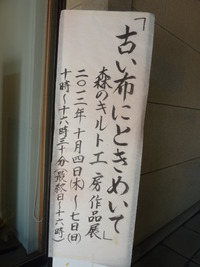 「古い布にときめいて」
森のキルト工房作品展
二〇一二年十月四日(木)〜七日(日)
十時〜十六時三十分(最終日〜十六時)